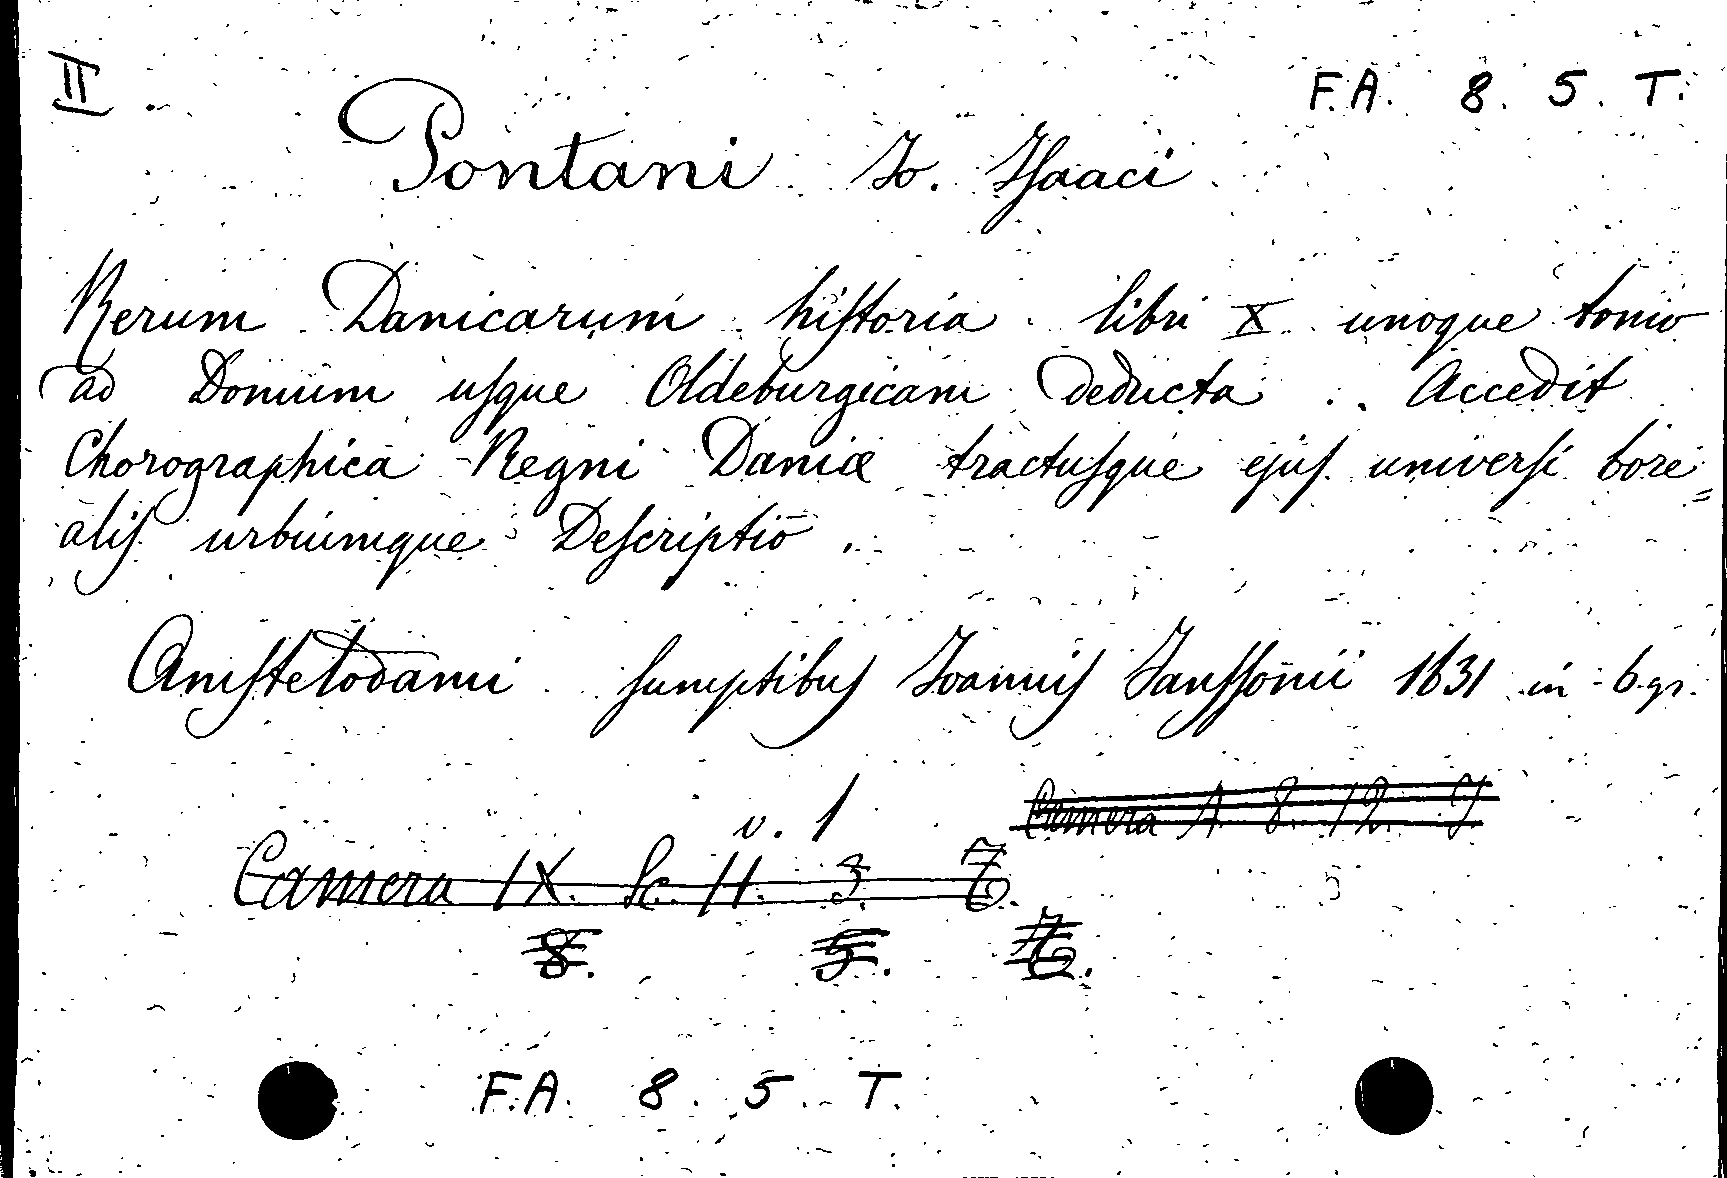 II
F.A. 8. 5. T.
Pontani Jo. Isaaci
Rerum Danicarum historia libri X unoque tomo
ad Domum usque Oldeburgicam deducta. Accedit
Chorographica Regni Daniæ tractusque ejus universi bore=
alis urbiumque Descriptio.
Amstelodami sumptibus Joannis Janssonii 1631 in 6. gr.
v. 1
Camera A 8. 12. 7.
Camera IX. Sc. 11. 3.
8. 5.
F.A. 8. 5. T.